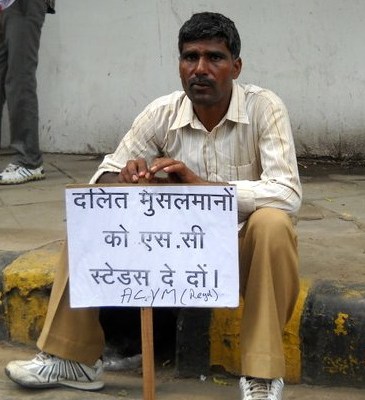 दलित मुसलमानों
को एस.सी
स्टेडस दे दों।
ACJM (Regd)